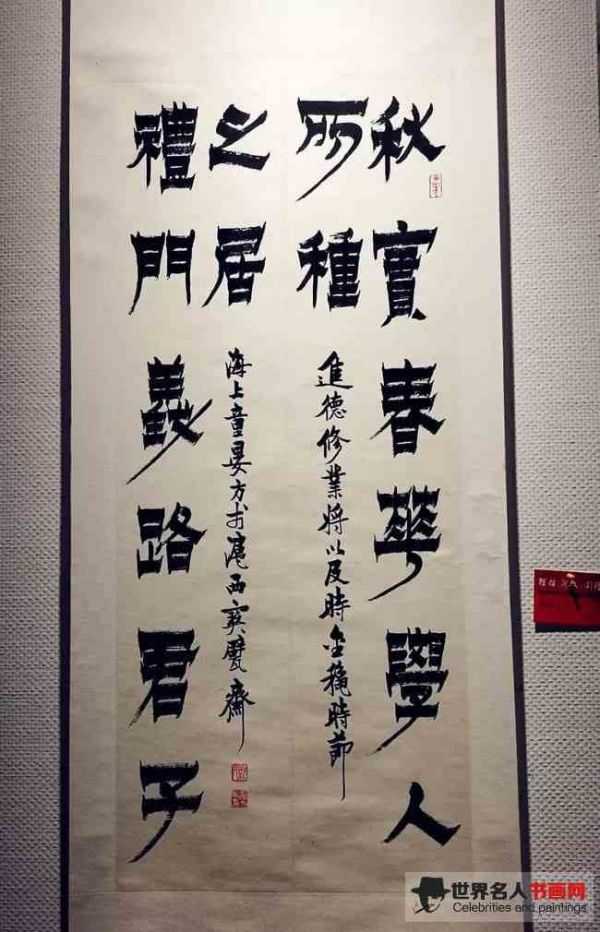 秋實春華學人
所種
進德修業將以及時金穐時節
禮門義路君子
之居
海上童晏方於滬西寶甓齋
世界名人书画网
Celebrities and paintings